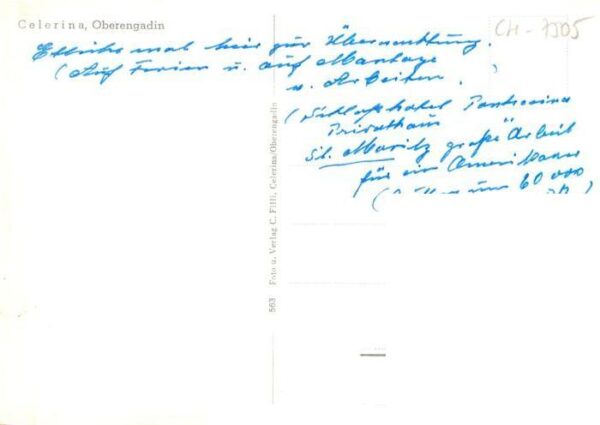 Celerina, Oberengadin
CH-7505
Etliche mal hier zur Übernachtung.
(Auf Ferien u. auf Montage
u. Arbeiten.)
(Schlosshotel Pontresina
Privathaus
St. Moritz große Arbeit
für ein Amerikaner
60 000
563 Foto u. Verlag C. Filli, Celerina/Oberengadin